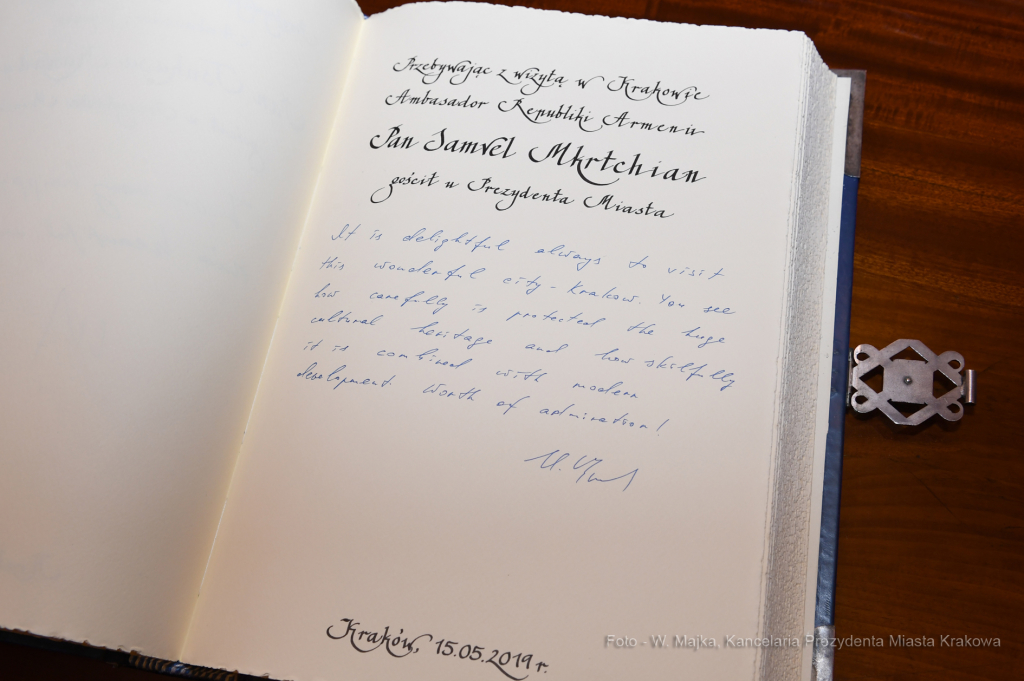 Przebywając z wizytą w Krakowie
Ambasador Republiki Armenii
Pan Samvel Mkrtchian
gościł u Prezydenta Miasta
It is delightful always to visit
this wonderful city - Krakow. You see
how carefully is protected the huge
cultural heritage and how skilfully
it is combined with modern
development worth of admiration!
Kraków, 15.05.2019 r.
Foto - W. Majka, Kancelaria Prezydenta Miasta Krakowa